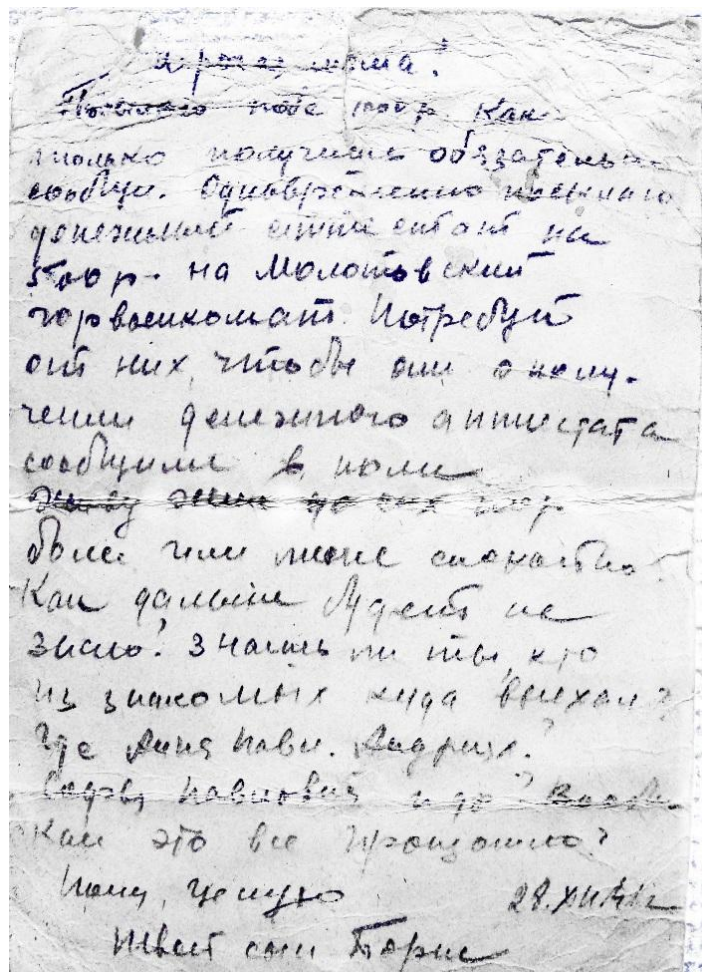 Дорогая мама!
Посылаю тебе 1100 р как
только получишь обязательно
сообщи. Одновременно посылаю
денежный аттестат на
500 р. на Молотовский
горвоенкомат. Потребуй
от них, чтобы они о полу-
чении денежного аттестата
сообщили в
до сих пор
более или мене спокойно.
Как дальше будет не
знаю! Знаешь ли ты, кто
из знакомых куда выехал?
Где Анна Павл. Андрих.?
Софья Павловна и др?
Как это все произошло?
целую 28.XII 41 г
Твой сын Борис